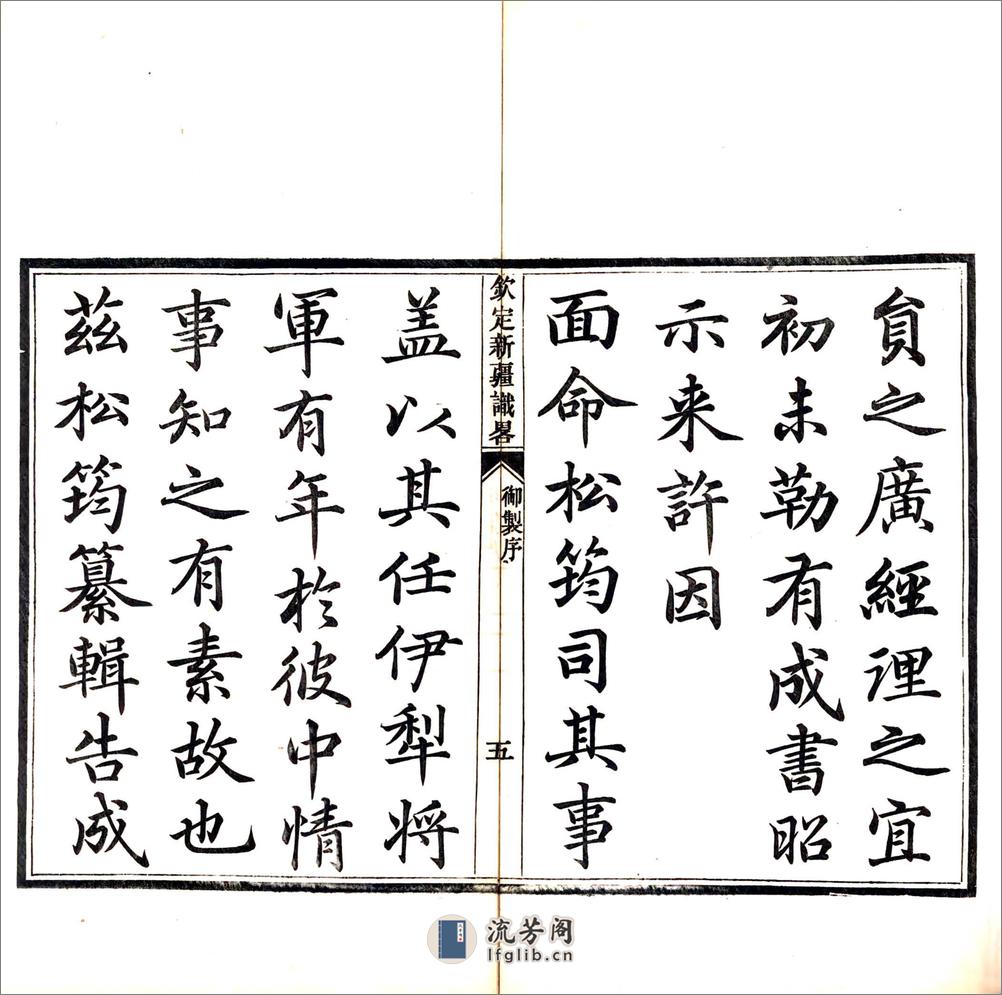 貟之廣經理之宜
初未勒有成書昭
示来許因
面命松筠司其事
欽定新疆識畧
御製序
五
盖以其任伊犁将
軍有年於彼中情
事知之有素故也
茲松筠纂輯告成
流芳阁
lfglib.cn